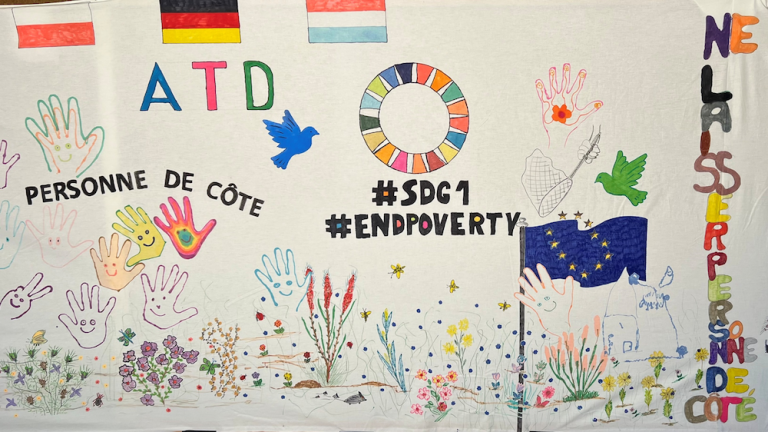 ATD
PERSONNE DE CÔTE
#SDG1
#ENDPOVERTY
NE LAISSER PERSONNE DE CÔTÉ